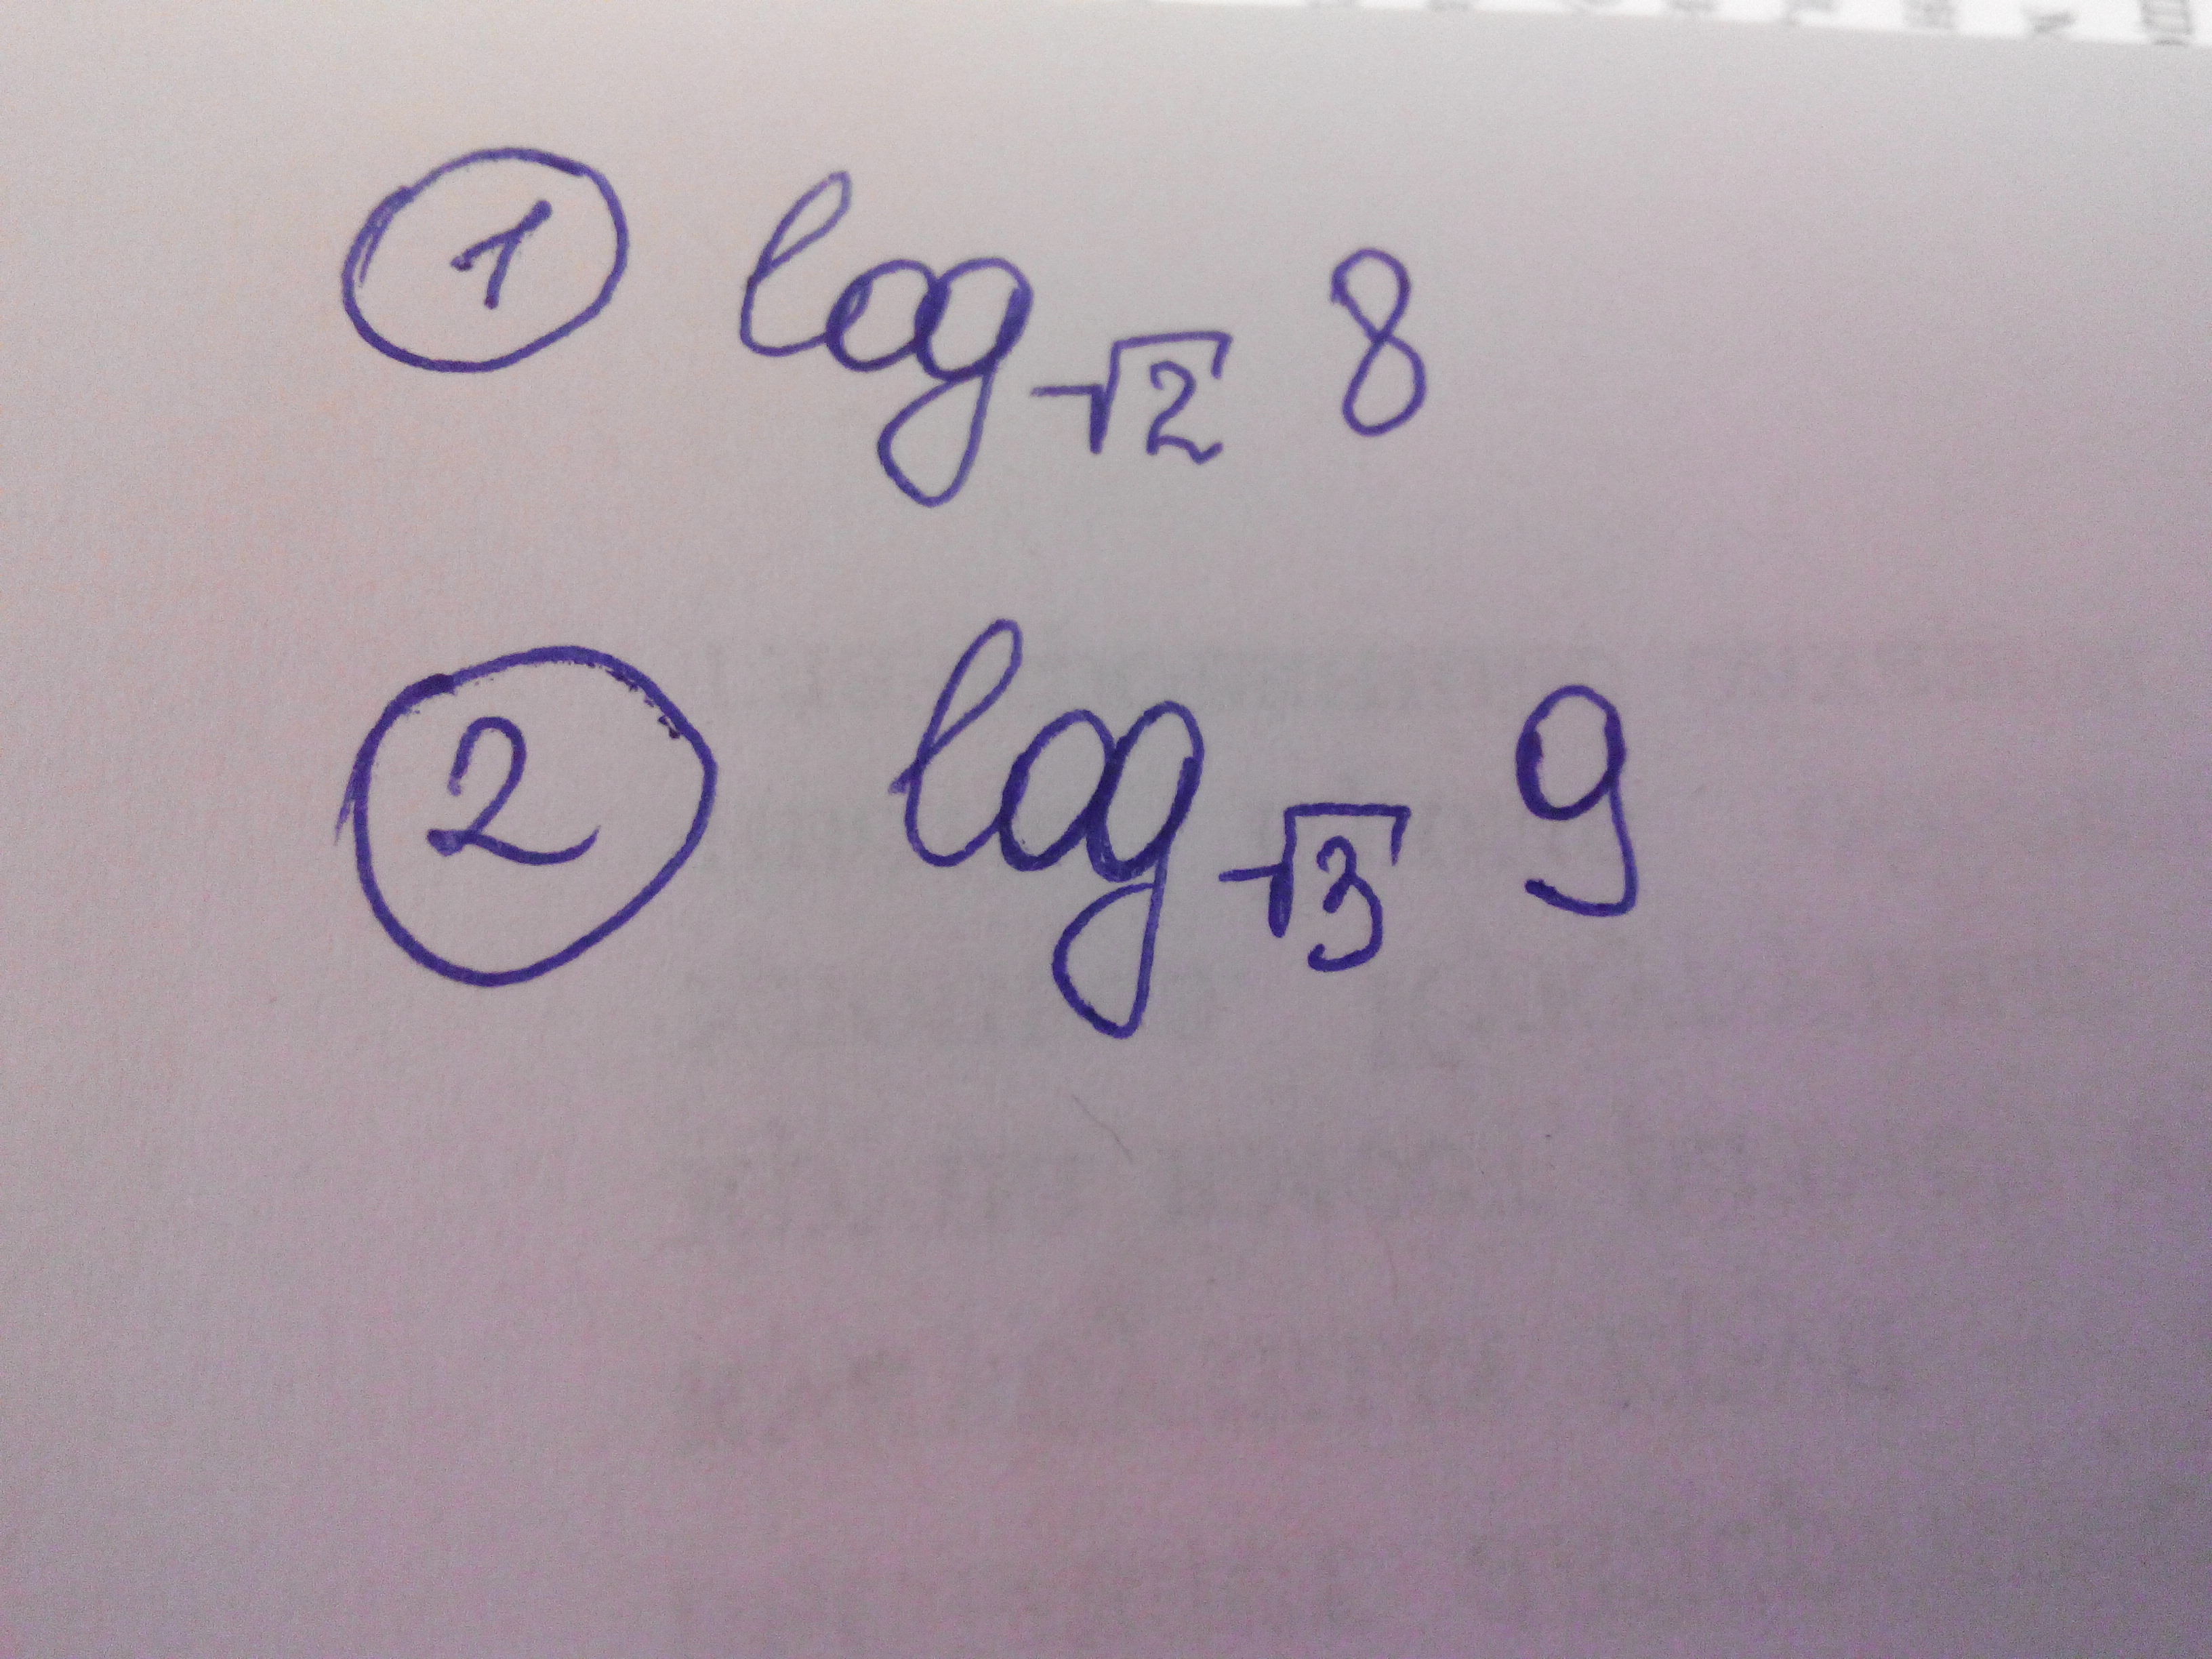 ① log√2 8
② log√3 9